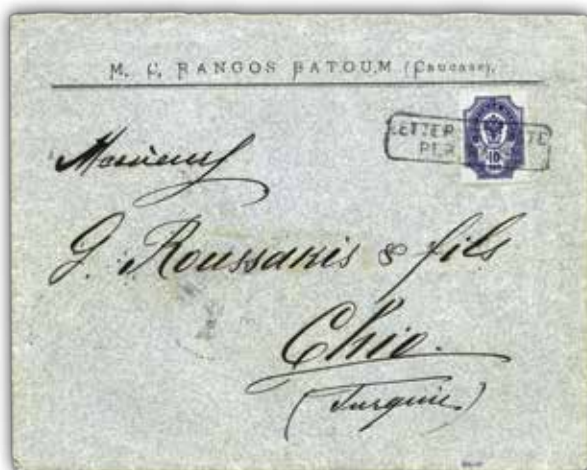 M. C. RANGOS BATOUM (Caucase).
LETTER
PER
10
Monsieur
G. Roussakis & fils
Chio.
(Turquie)